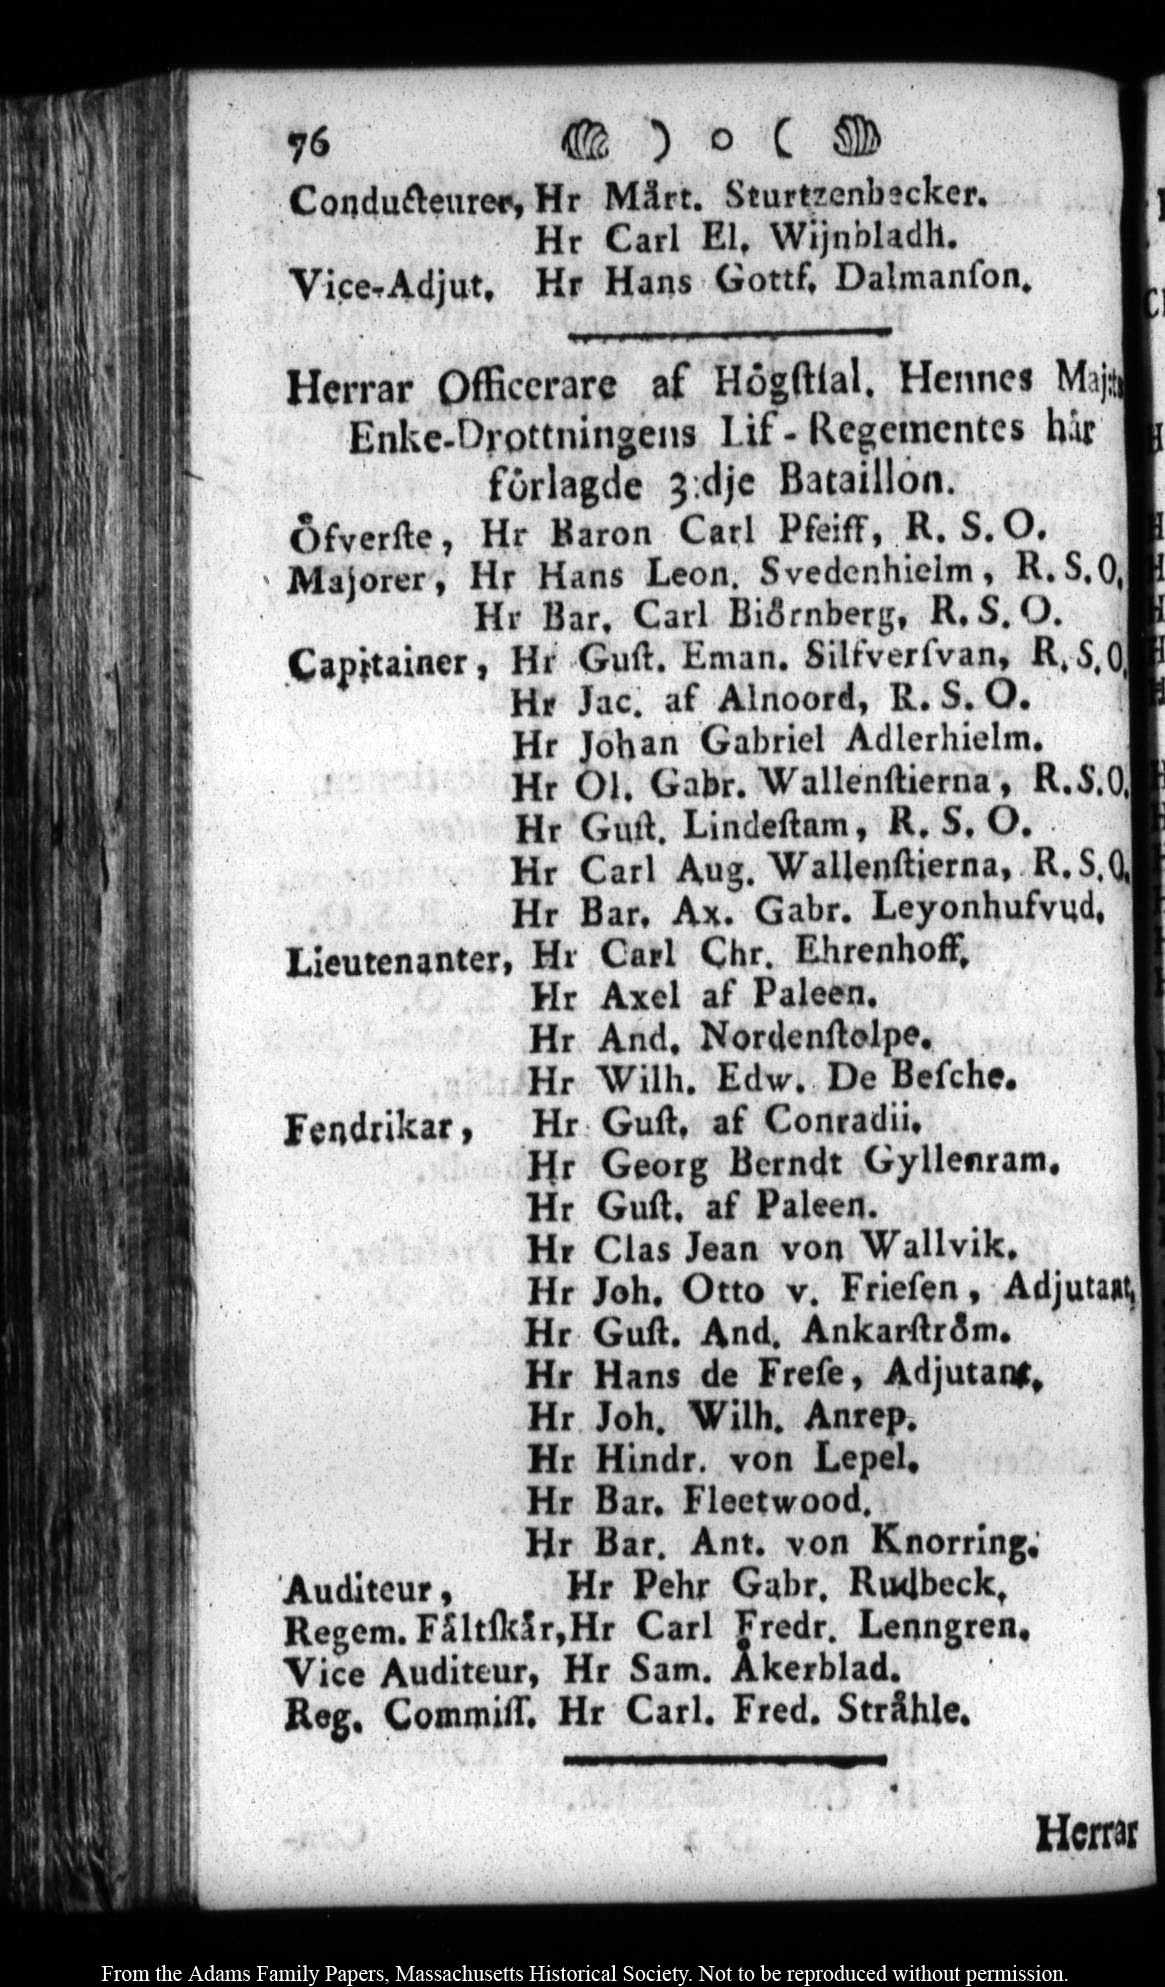 76 ) o (
Conducteurer, Hr Mårt. Sturtzenbecker.
Hr Carl El. Wijnbladh.
Vice-Adjut. Hr Hans Gottf. Dalmanſon.
Herrar Officerare af Högſtſal. Hennes Maj:ts
Enke-Drottningens Lif-Regementes hår
förlagde 3:dje Bataillon.
Öfverſte, Hr Baron Carl Pfeiff, R. S. O.
Majorer, Hr Hans Leon. Svedenhielm, R. S. O.
Hr Bar. Carl Biörnberg, R. S. O.
Capitainer, Hr Guſt. Eman. Silfverſvan, R. S. O.
Hr Jac. af Alnoord, R. S. O.
Hr Johan Gabriel Adlerhielm.
Hr Ol. Gabr. Wallenſtierna, R. S. O.
Hr Guſt. Lindeſtam, R. S. O.
Hr Carl Aug. Wallenſtierna, R. S. O.
Hr Bar. Ax. Gabr. Leyonhufvud.
Lieutenanter, Hr Carl Chr. Ehrenhoff.
Hr Axel af Paleen.
Hr And. Nordenſtolpe.
Hr Wilh. Edw. De Beſche.
Fendrikar, Hr Guſt. af Conradii.
Hr Georg Berndt Gyllenram.
Hr Guſt. af Paleen.
Hr Clas Jean von Wallvik.
Hr Joh. Otto v. Frieſen, Adjutant.
Hr Guſt. And. Ankarſtröm.
Hr Hans de Freſe, Adjutant.
Hr Joh. Wilh. Anrep.
Hr Hindr. von Lepel.
Hr Bar. Fleetwood.
Hr Bar. Ant. von Knorring.
Auditeur, Hr Pehr Gabr. Rudbeck.
Regem. Fåltſkår, Hr Carl Fredr. Lenngren.
Vice Auditeur, Hr Sam. Åkerblad.
Reg. Commiſſ. Hr Carl. Fred. Stråhle.
Herrar
From the Adams Family Papers, Massachusetts Historical Society. Not to be reproduced without permission.